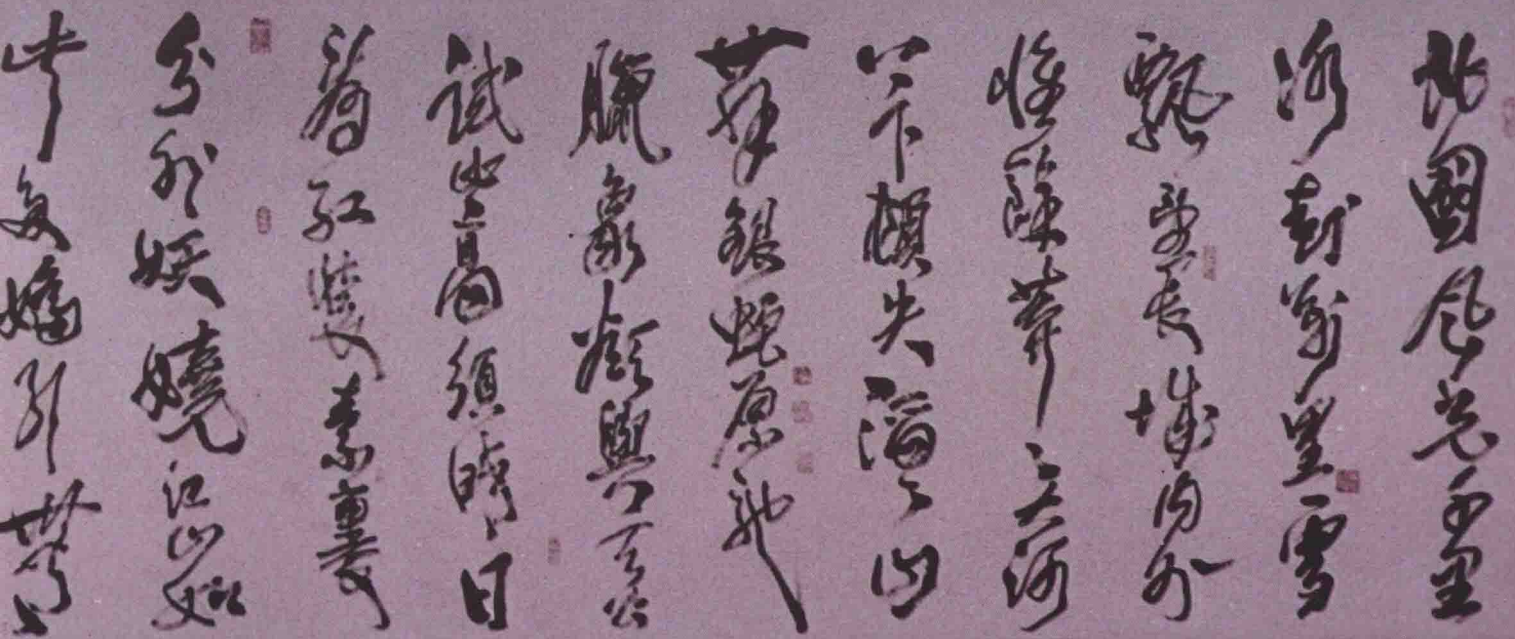 北國風光千里
冰封萬里雪
飄望長城內外
惟餘莽〻大河
上下頓失滔〻山
舞銀蛇原馳
臘象欲與天公
試比高須晴日
看紅裝素裹
分外妖嬈江山如
此多嬌引無